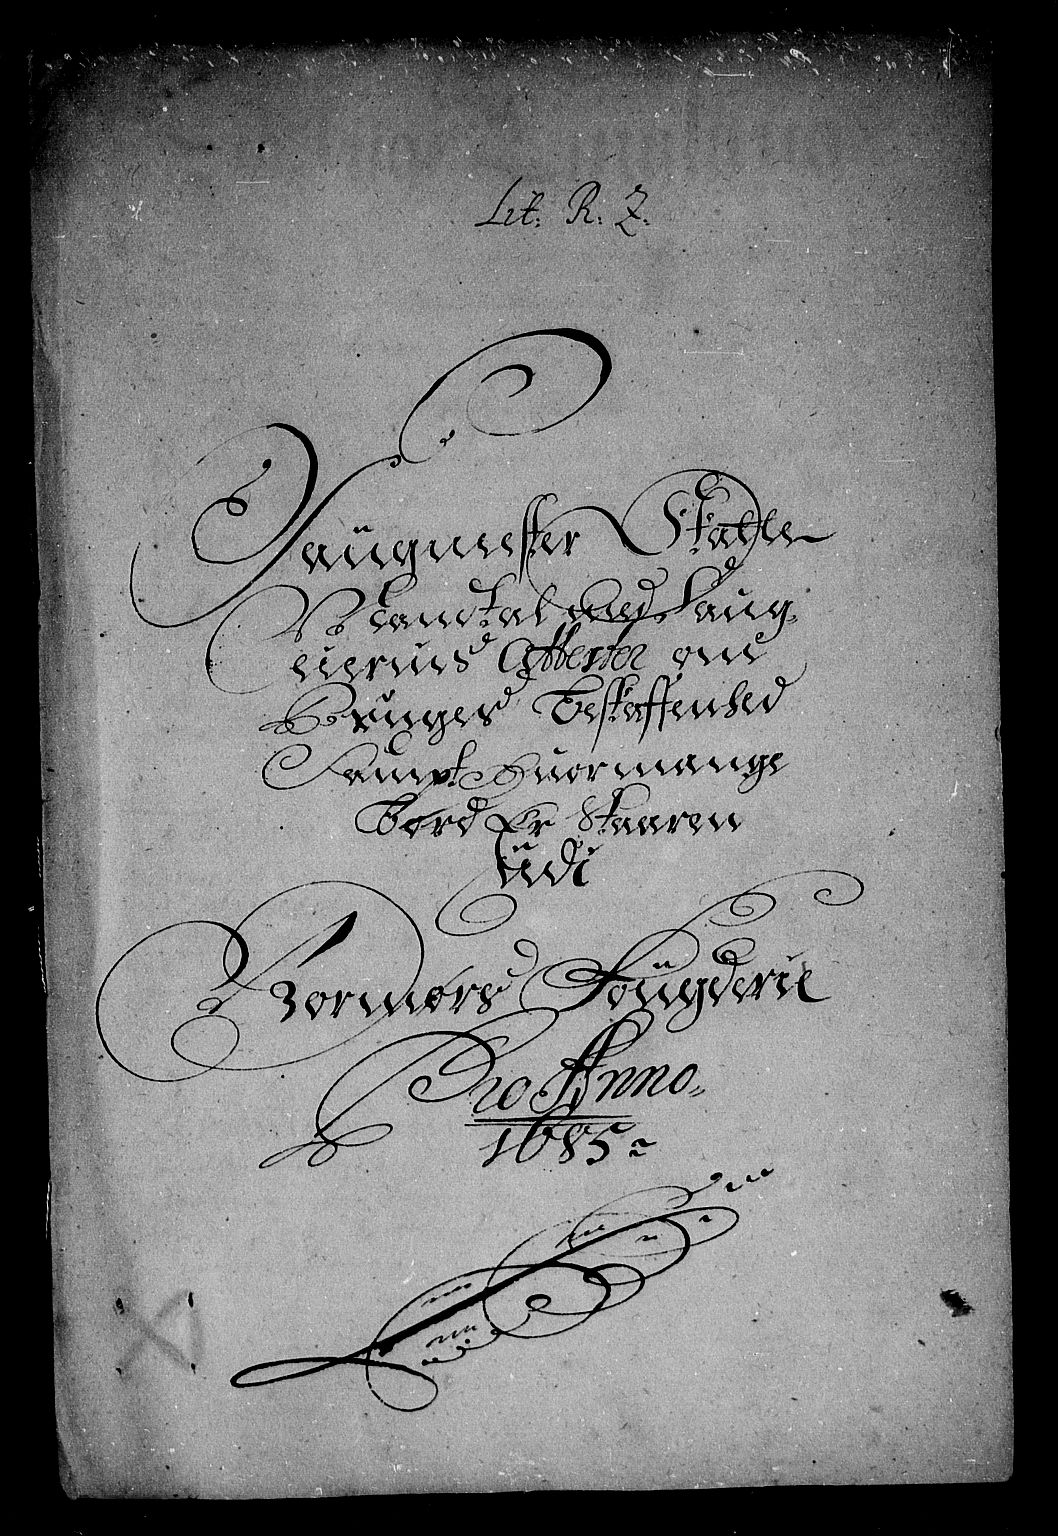 Lit: R. Z.
Saugmester Skatte
Mandtal med Saug
eiernis Attester om
Bruges Beskaffenhed
Sampt Huormange
Bord Er Skaaren
Udi
Romsdals Fougderie
Pro Anno
1685